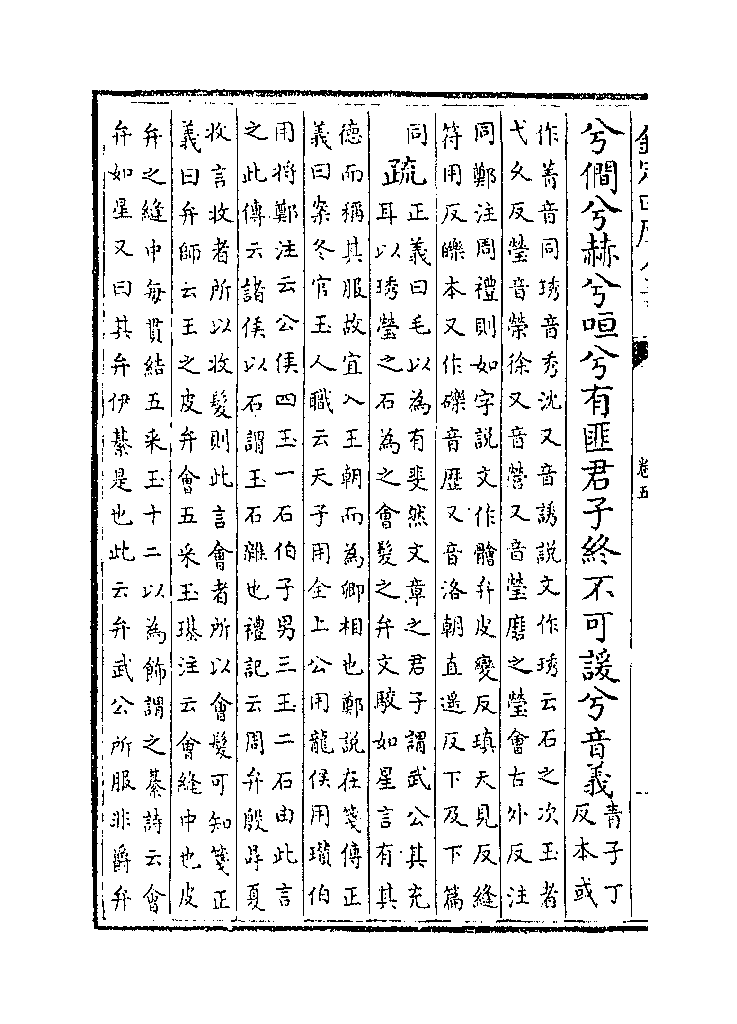 卷五
兮僩兮赫兮咺兮有匪君子終不可諼兮音義
青子丁
反本或
作菁音同琇音秀沈又音誘說文作琇云石之次玉者
弋久反瑩音榮徐又音營又音瑩磨之瑩會古外反注
同鄭注周禮則如字說文作䯤弁皮變反瑱天見反縫
符用反皪本又作礫音歴又音洛朝直遥反下及下篇
同
疏
正義曰毛以為有斐然文章之君子謂武公其充
耳以琇瑩之石為之會髮之弁文駮如星言有其
德而稱其服故宜入王朝而為卿相也鄭說在箋傳正
義曰案冬官玉人職云天子用全上公用龍侯用瓚伯
用將鄭注云公侯四玉一石伯子男三玉二石由此言
之此傳云諸侯以石謂玉石雜也禮記云周弁殷冔夏
收言收者所以收髮則此言會者所以會髮可知箋正
義曰弁師云王之皮弁會五采玉璂注云會縫中也皮
弁之縫中每貫結五采玉十二以為飾謂之綦詩云會
弁如星又曰其弁伊綦是也此云弁武公所服非爵弁